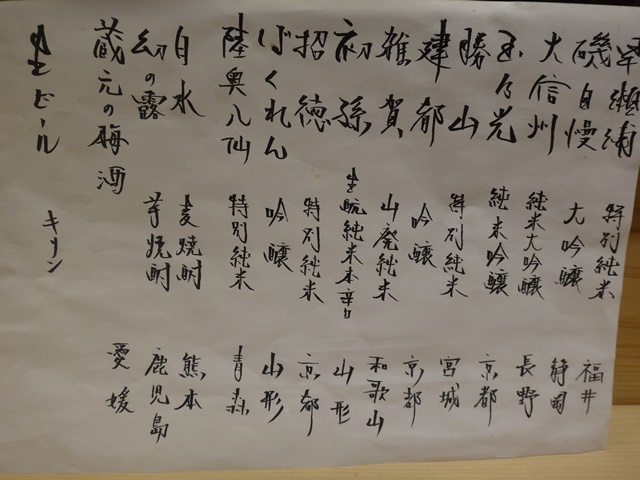 早瀬浦 特別純米 福井
磯自慢 大吟醸 静岡
大信州 純米大吟醸 長野
玉乃光 純米吟醸 京都
勝山 特別純米 宮城
建都 吟醸 京都
雑賀 山廃純米 和歌山
初孫 生酛純米本辛口 山形
招徳 特別純米 京都
ばくれん 吟醸 山形
陸奥八仙 特別純米 青森
白水 麦焼酎 熊本
幻の露 芋焼酎 鹿児島
蔵元の梅酒 愛媛
生ビール キリン